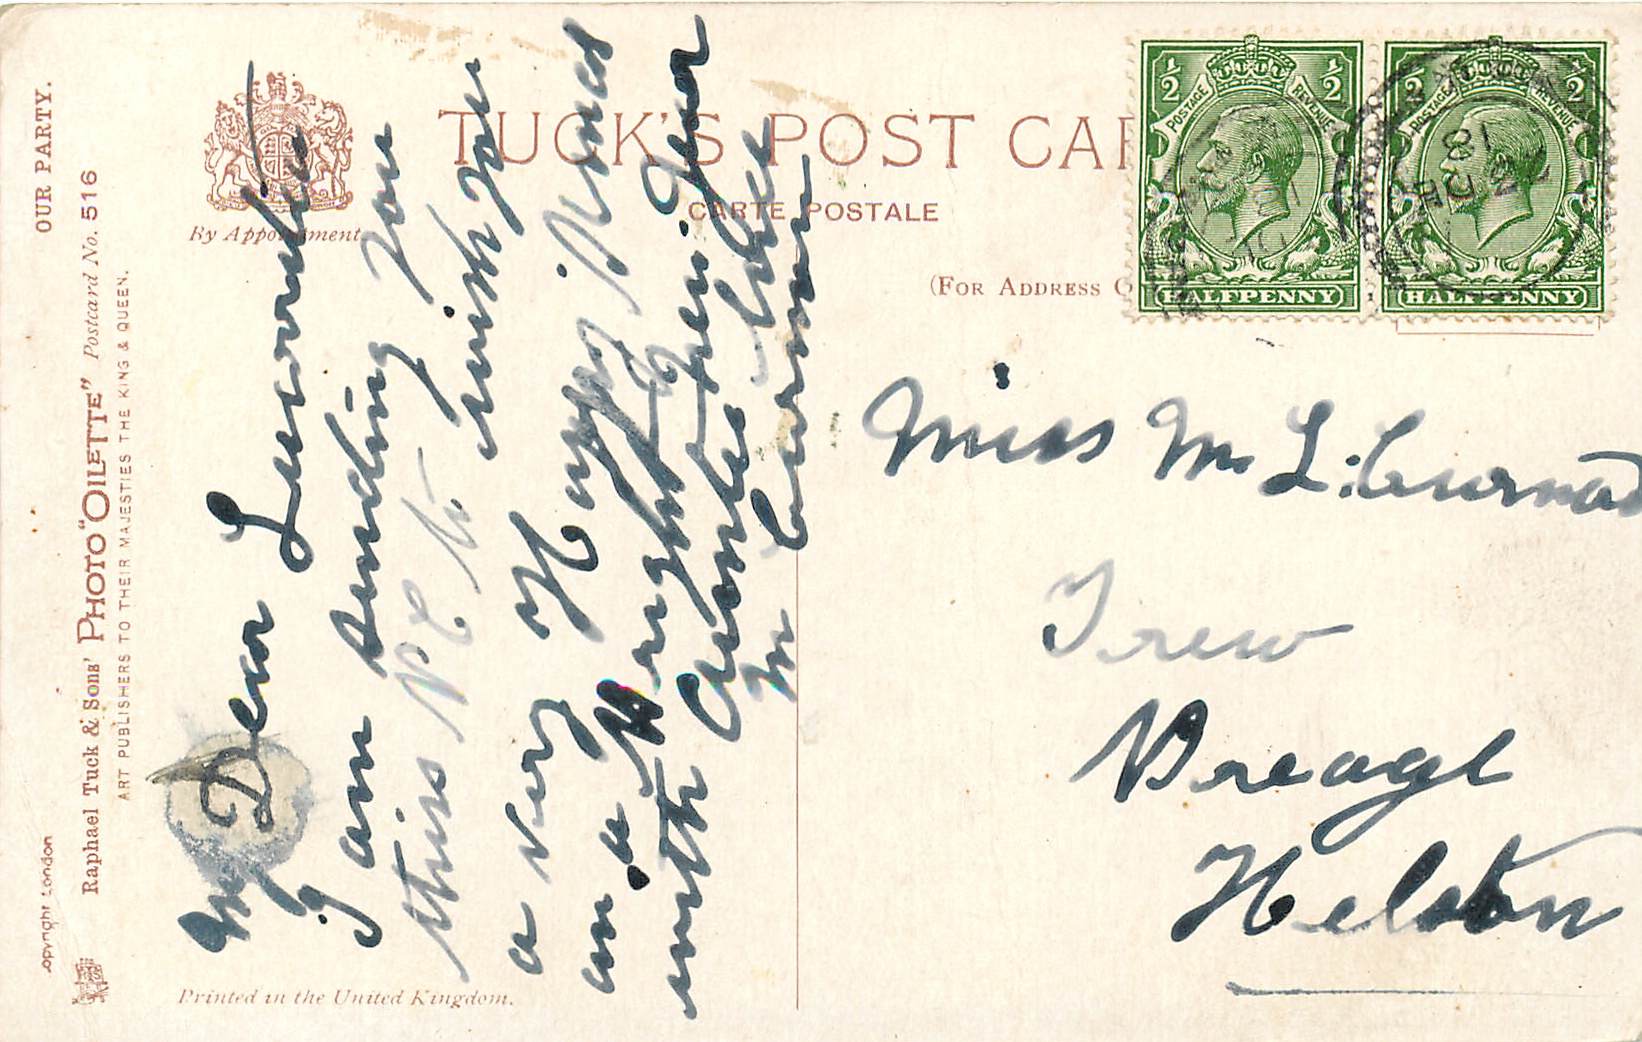 OUR PARTY.
Raphael Tuck & Sons' PHOTO "OILETTE" Postcard No. 516
ART PUBLISHERS TO THEIR MAJESTIES THE KING & QUEEN.
opyright London
By Appointment
TUCK'S POST CAR
CARTE POSTALE
(FOR ADDRESS O
½ ½
POSTAGE REVENUE
HALFPENNY
½ ½
POSTAGE REVENUE
HALFPENNY
18
My Dear
I am sending you
this P C to wish you
a very Happy Xmas
an a Bright New Year
with Auntie love
M Curnow
Miss M L. Curnow
Trew
Breage
Helston
Printed in the United Kingdom.